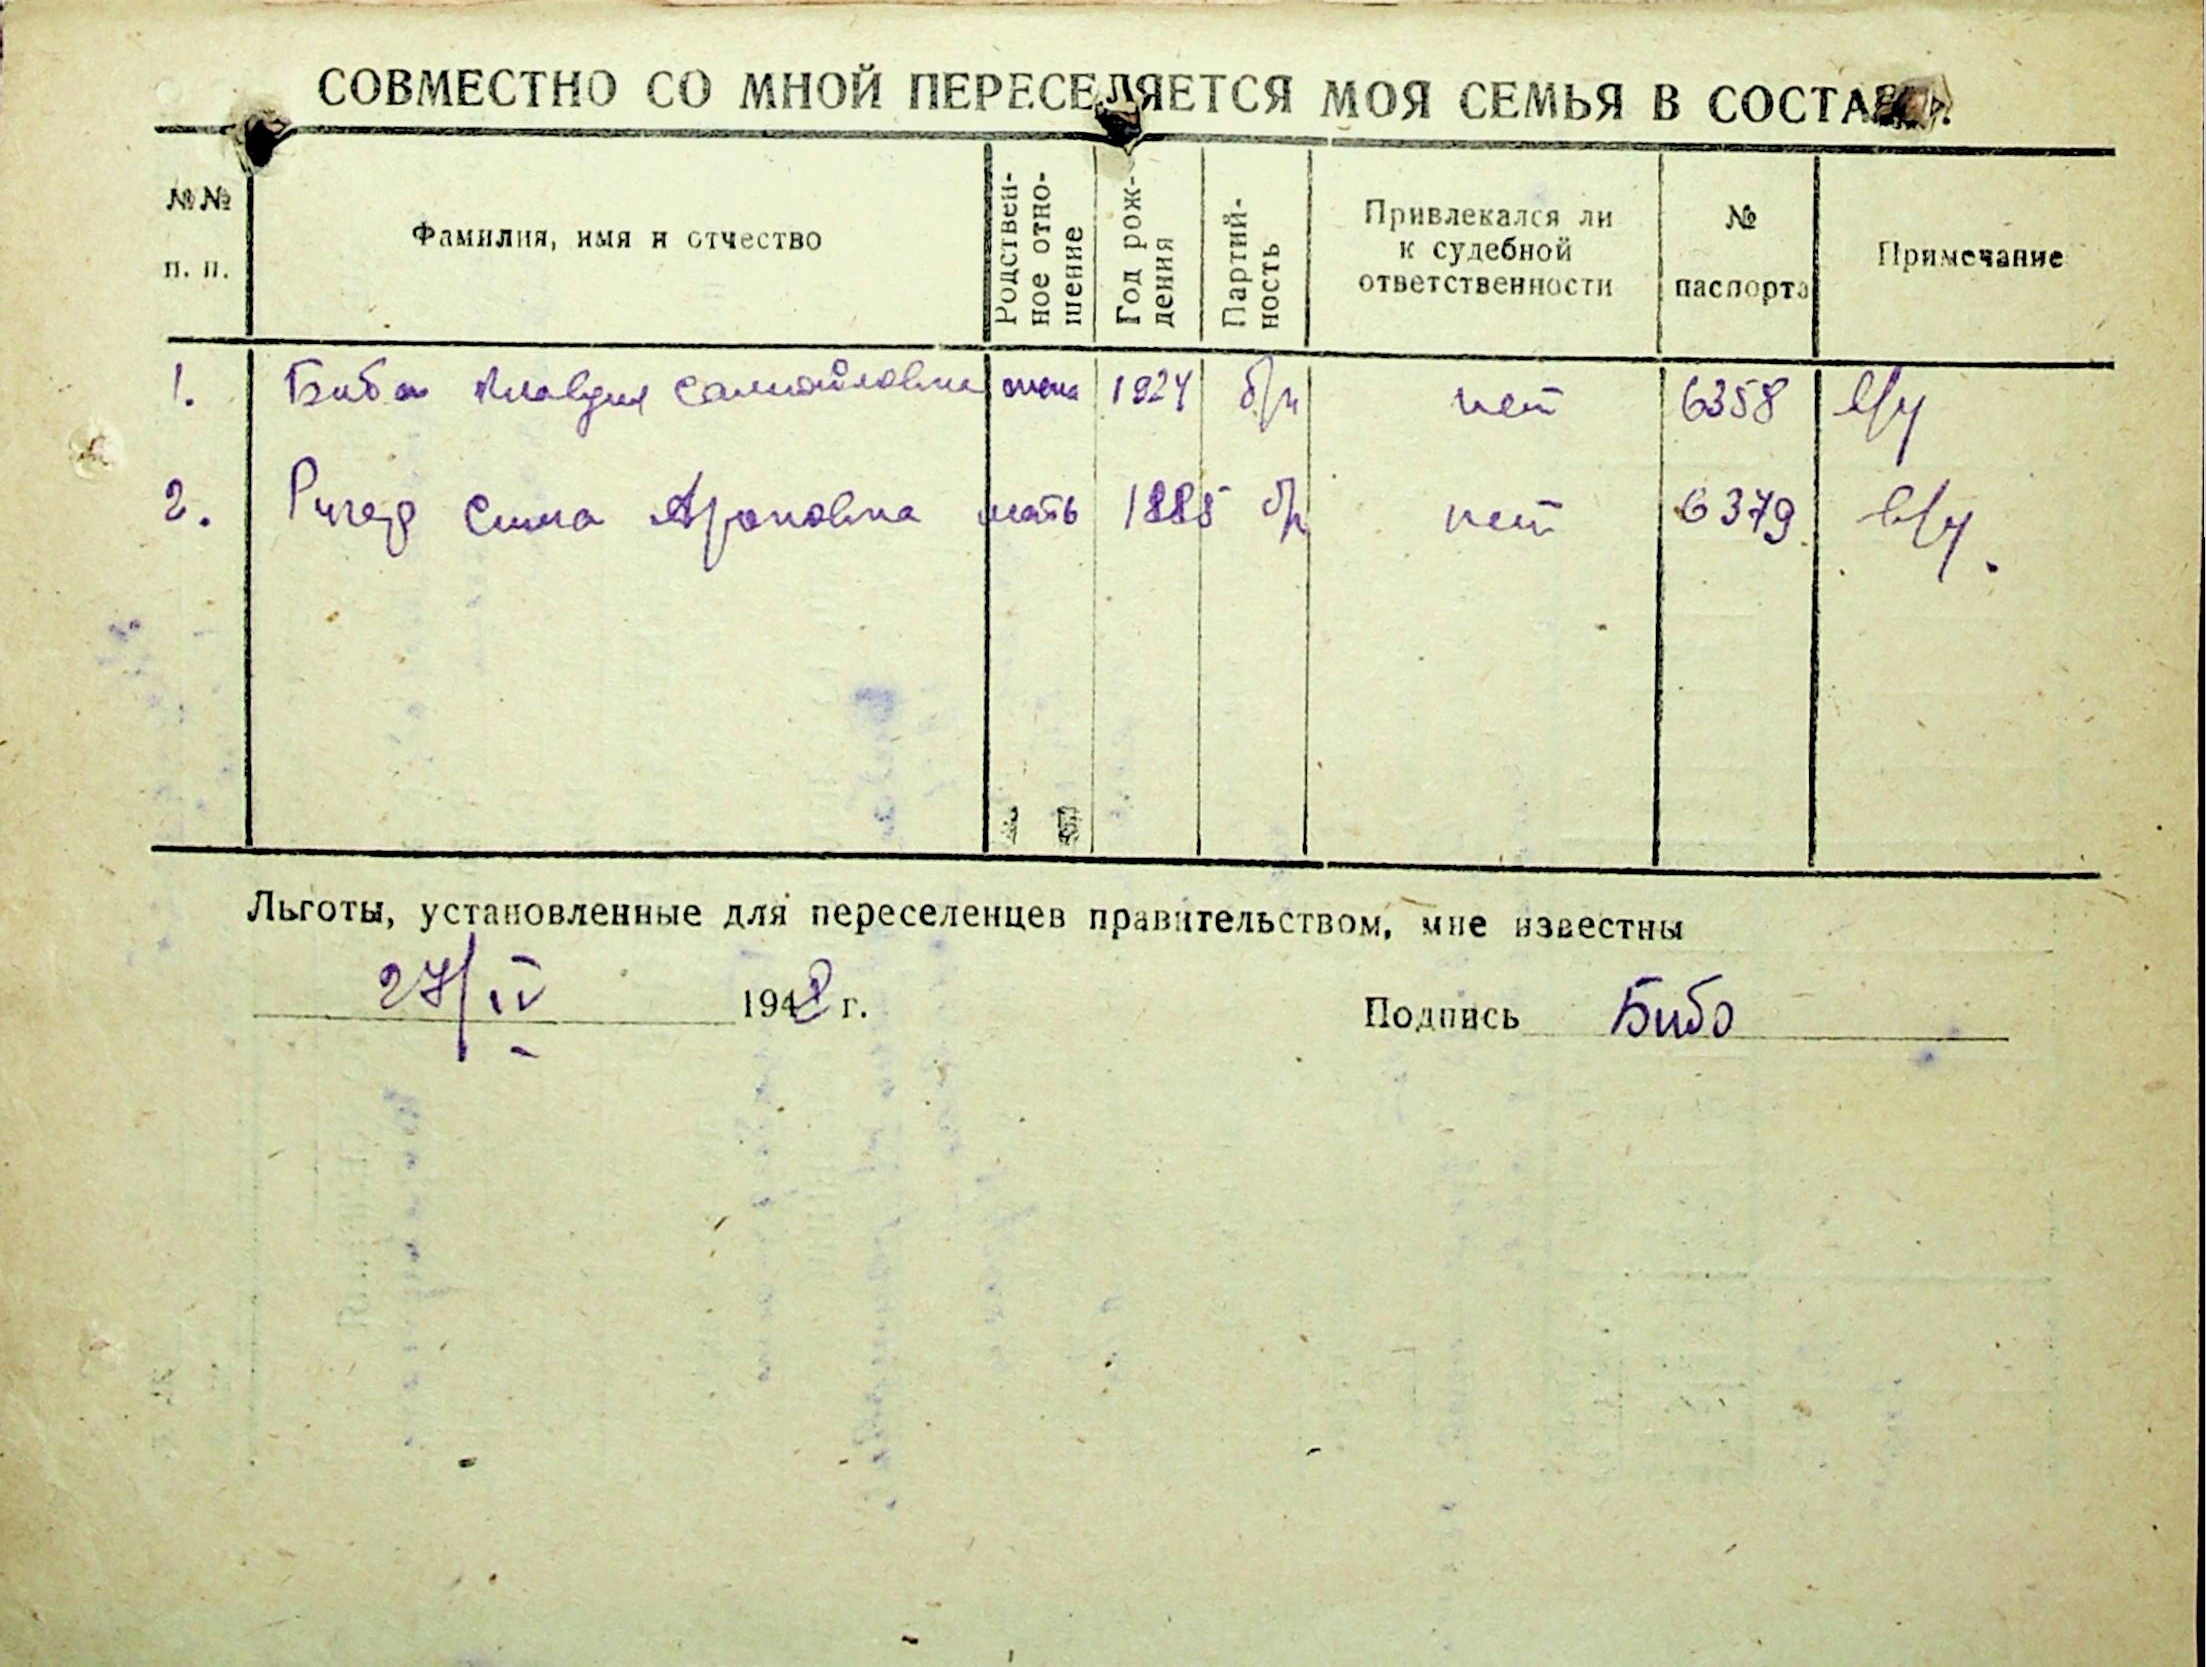 СОВМЕСТНО СО МНОЙ ПЕРЕСЕЛЯЕТСЯ МОЯ СЕМЬЯ В СОСТАВЕ:
№№ п. п.
Фамилия, имя и отчество
Родствен-
ное отно-
шение
Год рож-
дения
Партий-
ность
Привлекался ли
к судебной
ответственности
№
паспорта
Примечание
1. Бибо Клавдия Самойловна жена 1924 б/п нет 6358
2. Сима Ароновна мать 1885 б/п нет 6379
Льготы, установленные для переселенцев правительством, мне известны
27/IV 1948 г.
Подпись Бибо